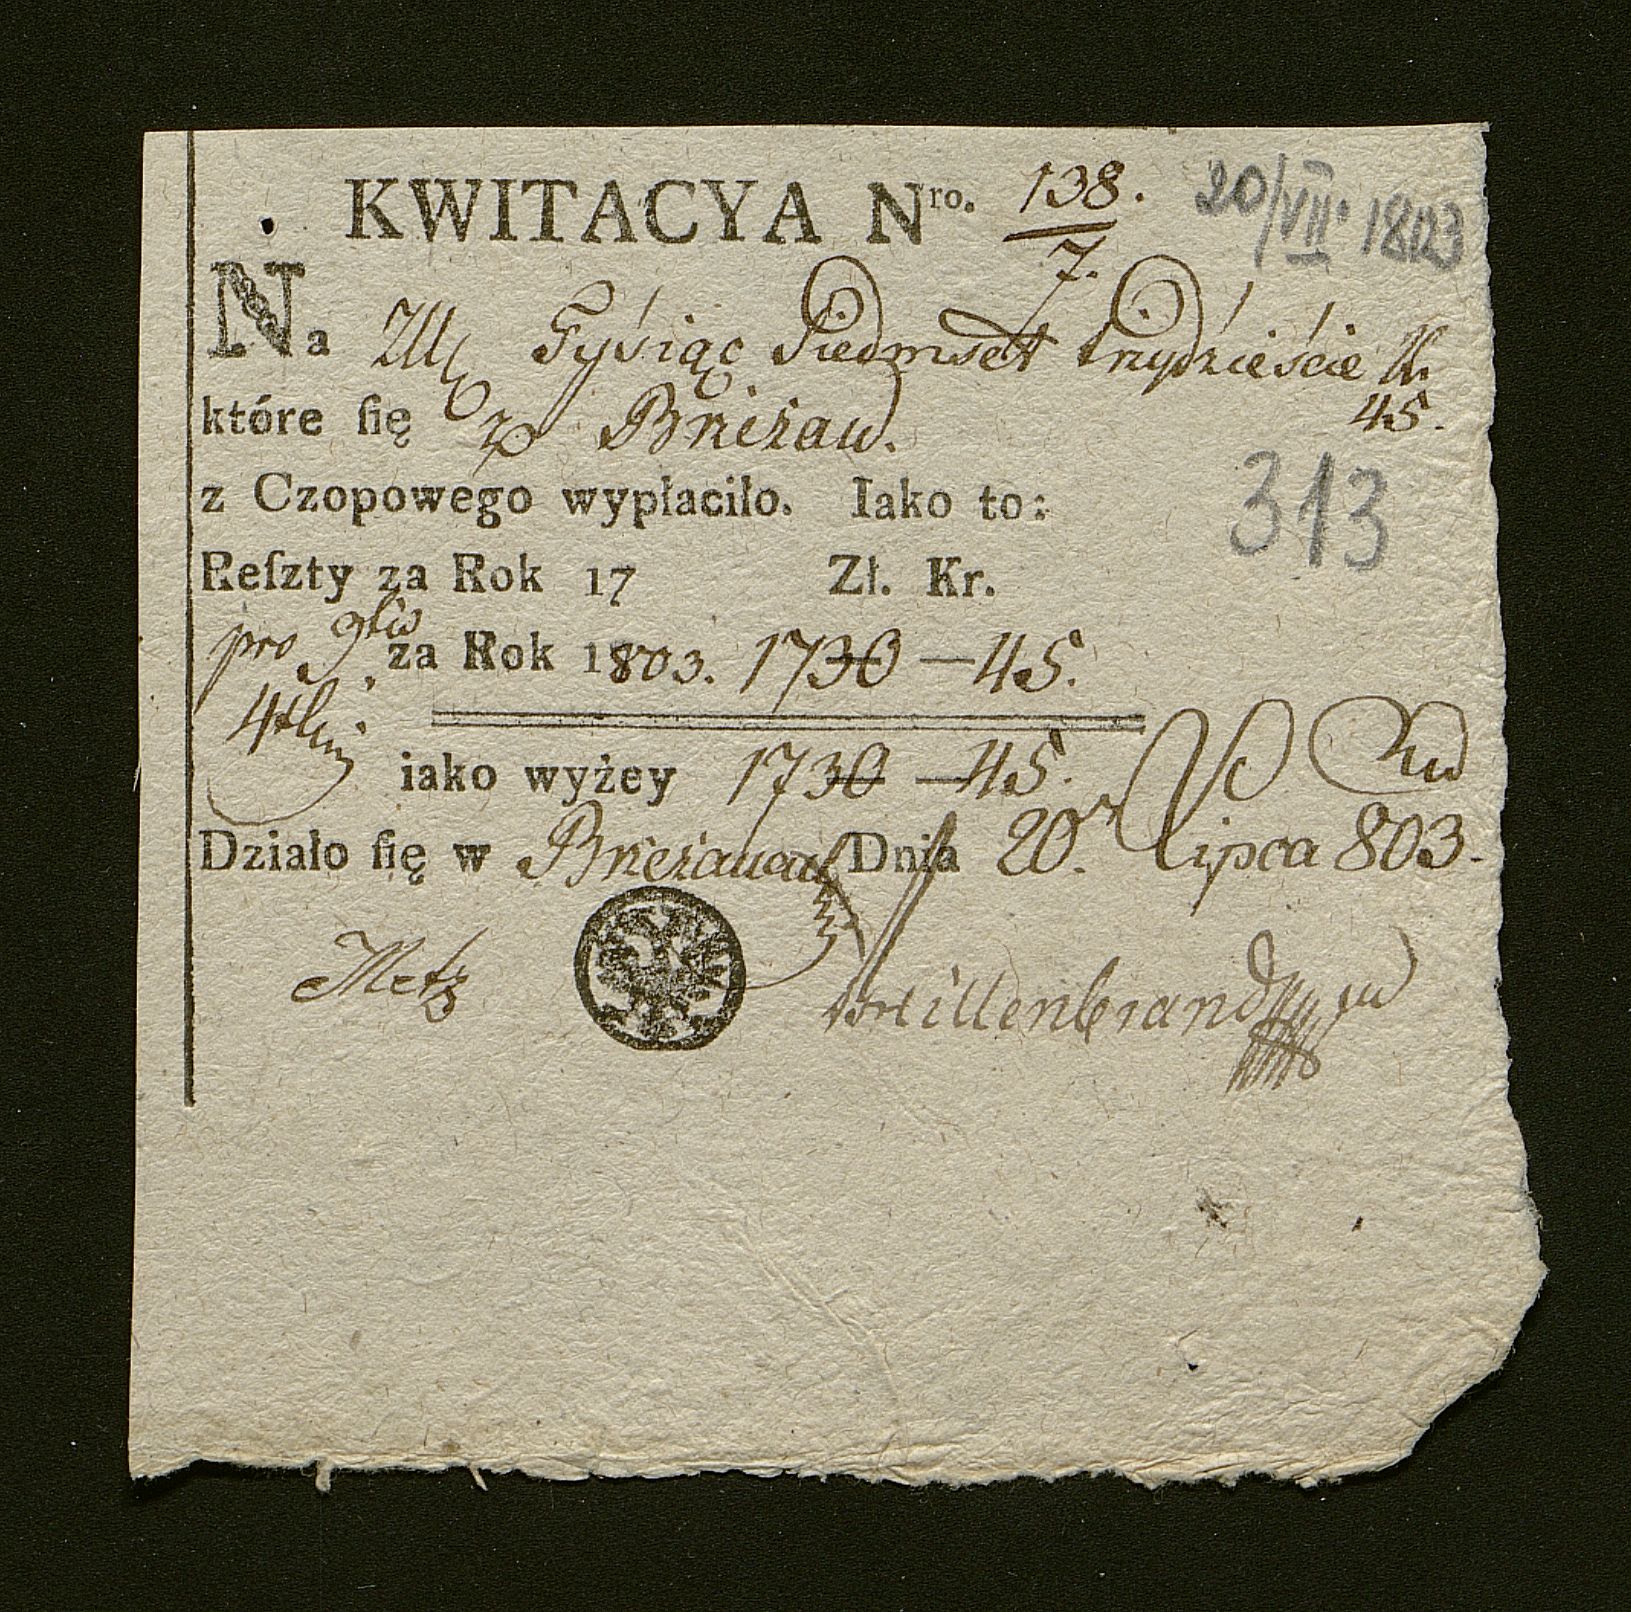 KWITACYA Nro. 138.
7.
20/VII. 1803
Na Tysiąc Siedmset trzydzieście Kr
45.
które ſię z Brzeżan.
z Czopowego wypłaciło. Iako to:
313
Reſzty za Rok 17 Zł. Kr.
pro
za Rok 1803. 1730 — 45.
iako wyżey 1730 — 45.
Działo ſię w Brzeżanach Dnia 20. Lipca 803.
Metz
Hillenbrand